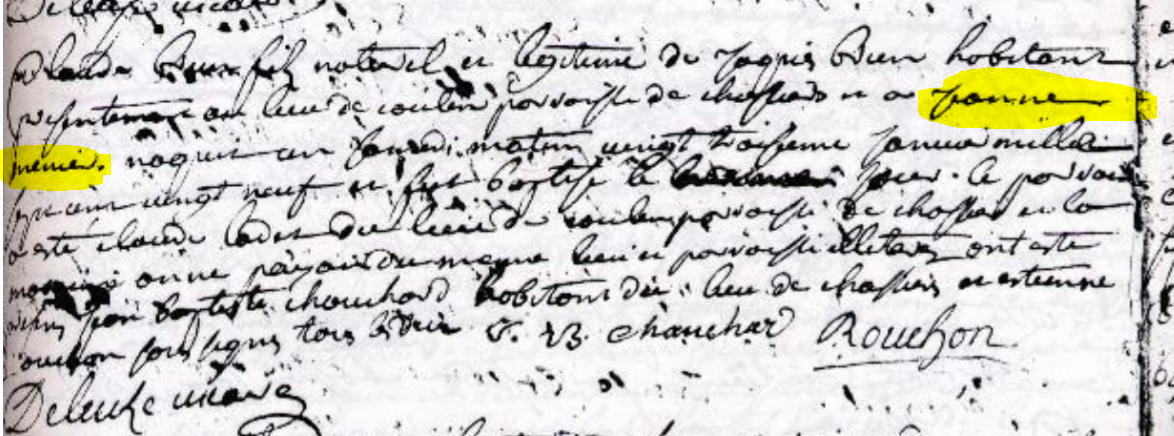 Deleuze vicaire
Claude Brun fils naturel et legitime de jaques Brun habitant
presentement au lieu de coulen parroisse de chassiers et de janne
menier. naquit un samedi matin vingt troisieme janvier mille
sept cent vingt neuf et fut baptisé le jour. le parrain
a esté claude du lieu de coulen parroisse de chassiers et la
marraine anne du meme lieu et parroisse illeteres ont este
jean baptiste chauchard habitant du lieu de chassiers et estienne
rouchon sous signes tous deux J. B. Chauchard Rouchon
Deleuze vicaire